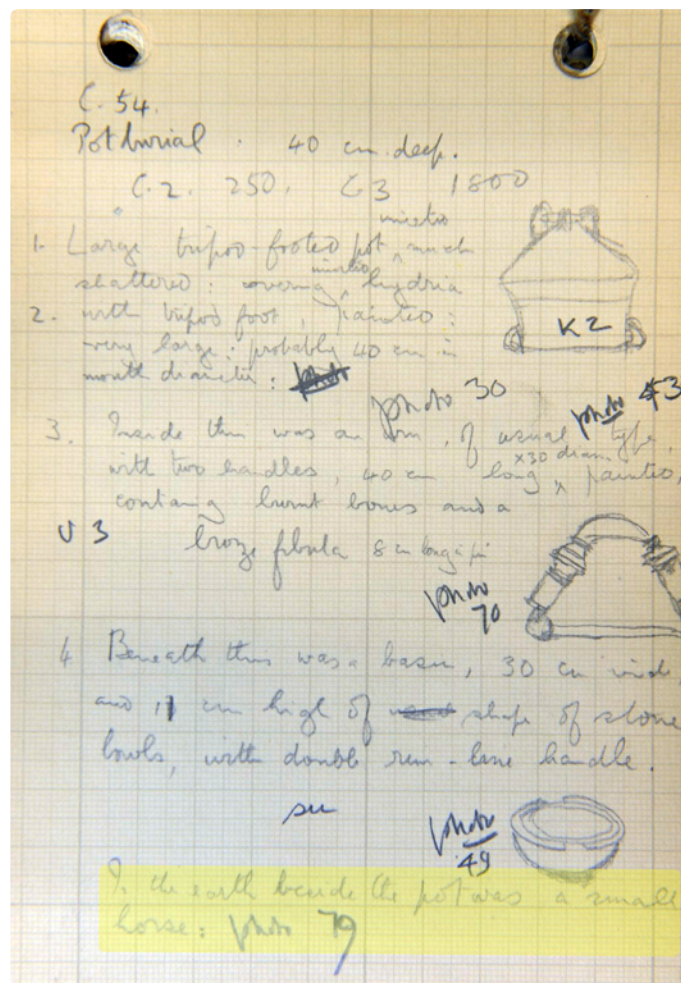 C. 54.
Pot burial. 40 cm. deep.
C. 2. 250. C. 3 1800
inverted
1. Large tripod-footed pot, much
shattered: covering inverted hydria
2. with tripod foot, painted:
very large: probably 40 cm in
mouth diameter: photo
photo 30
photo 43
3. Inside this was an urn, of usual type,
with two handles, 40 cm long x30 diam. painted,
containg burnt bones and a
U 3 bronze fibula 8 cm long
photo
70
4 Beneath this was a basin, 30 cm wide,
and 11 cm high of shape of stone
bowls, with double rim-line handle.
photo
49
In the earth beside the pot was a small
horse: photo 79
K 2